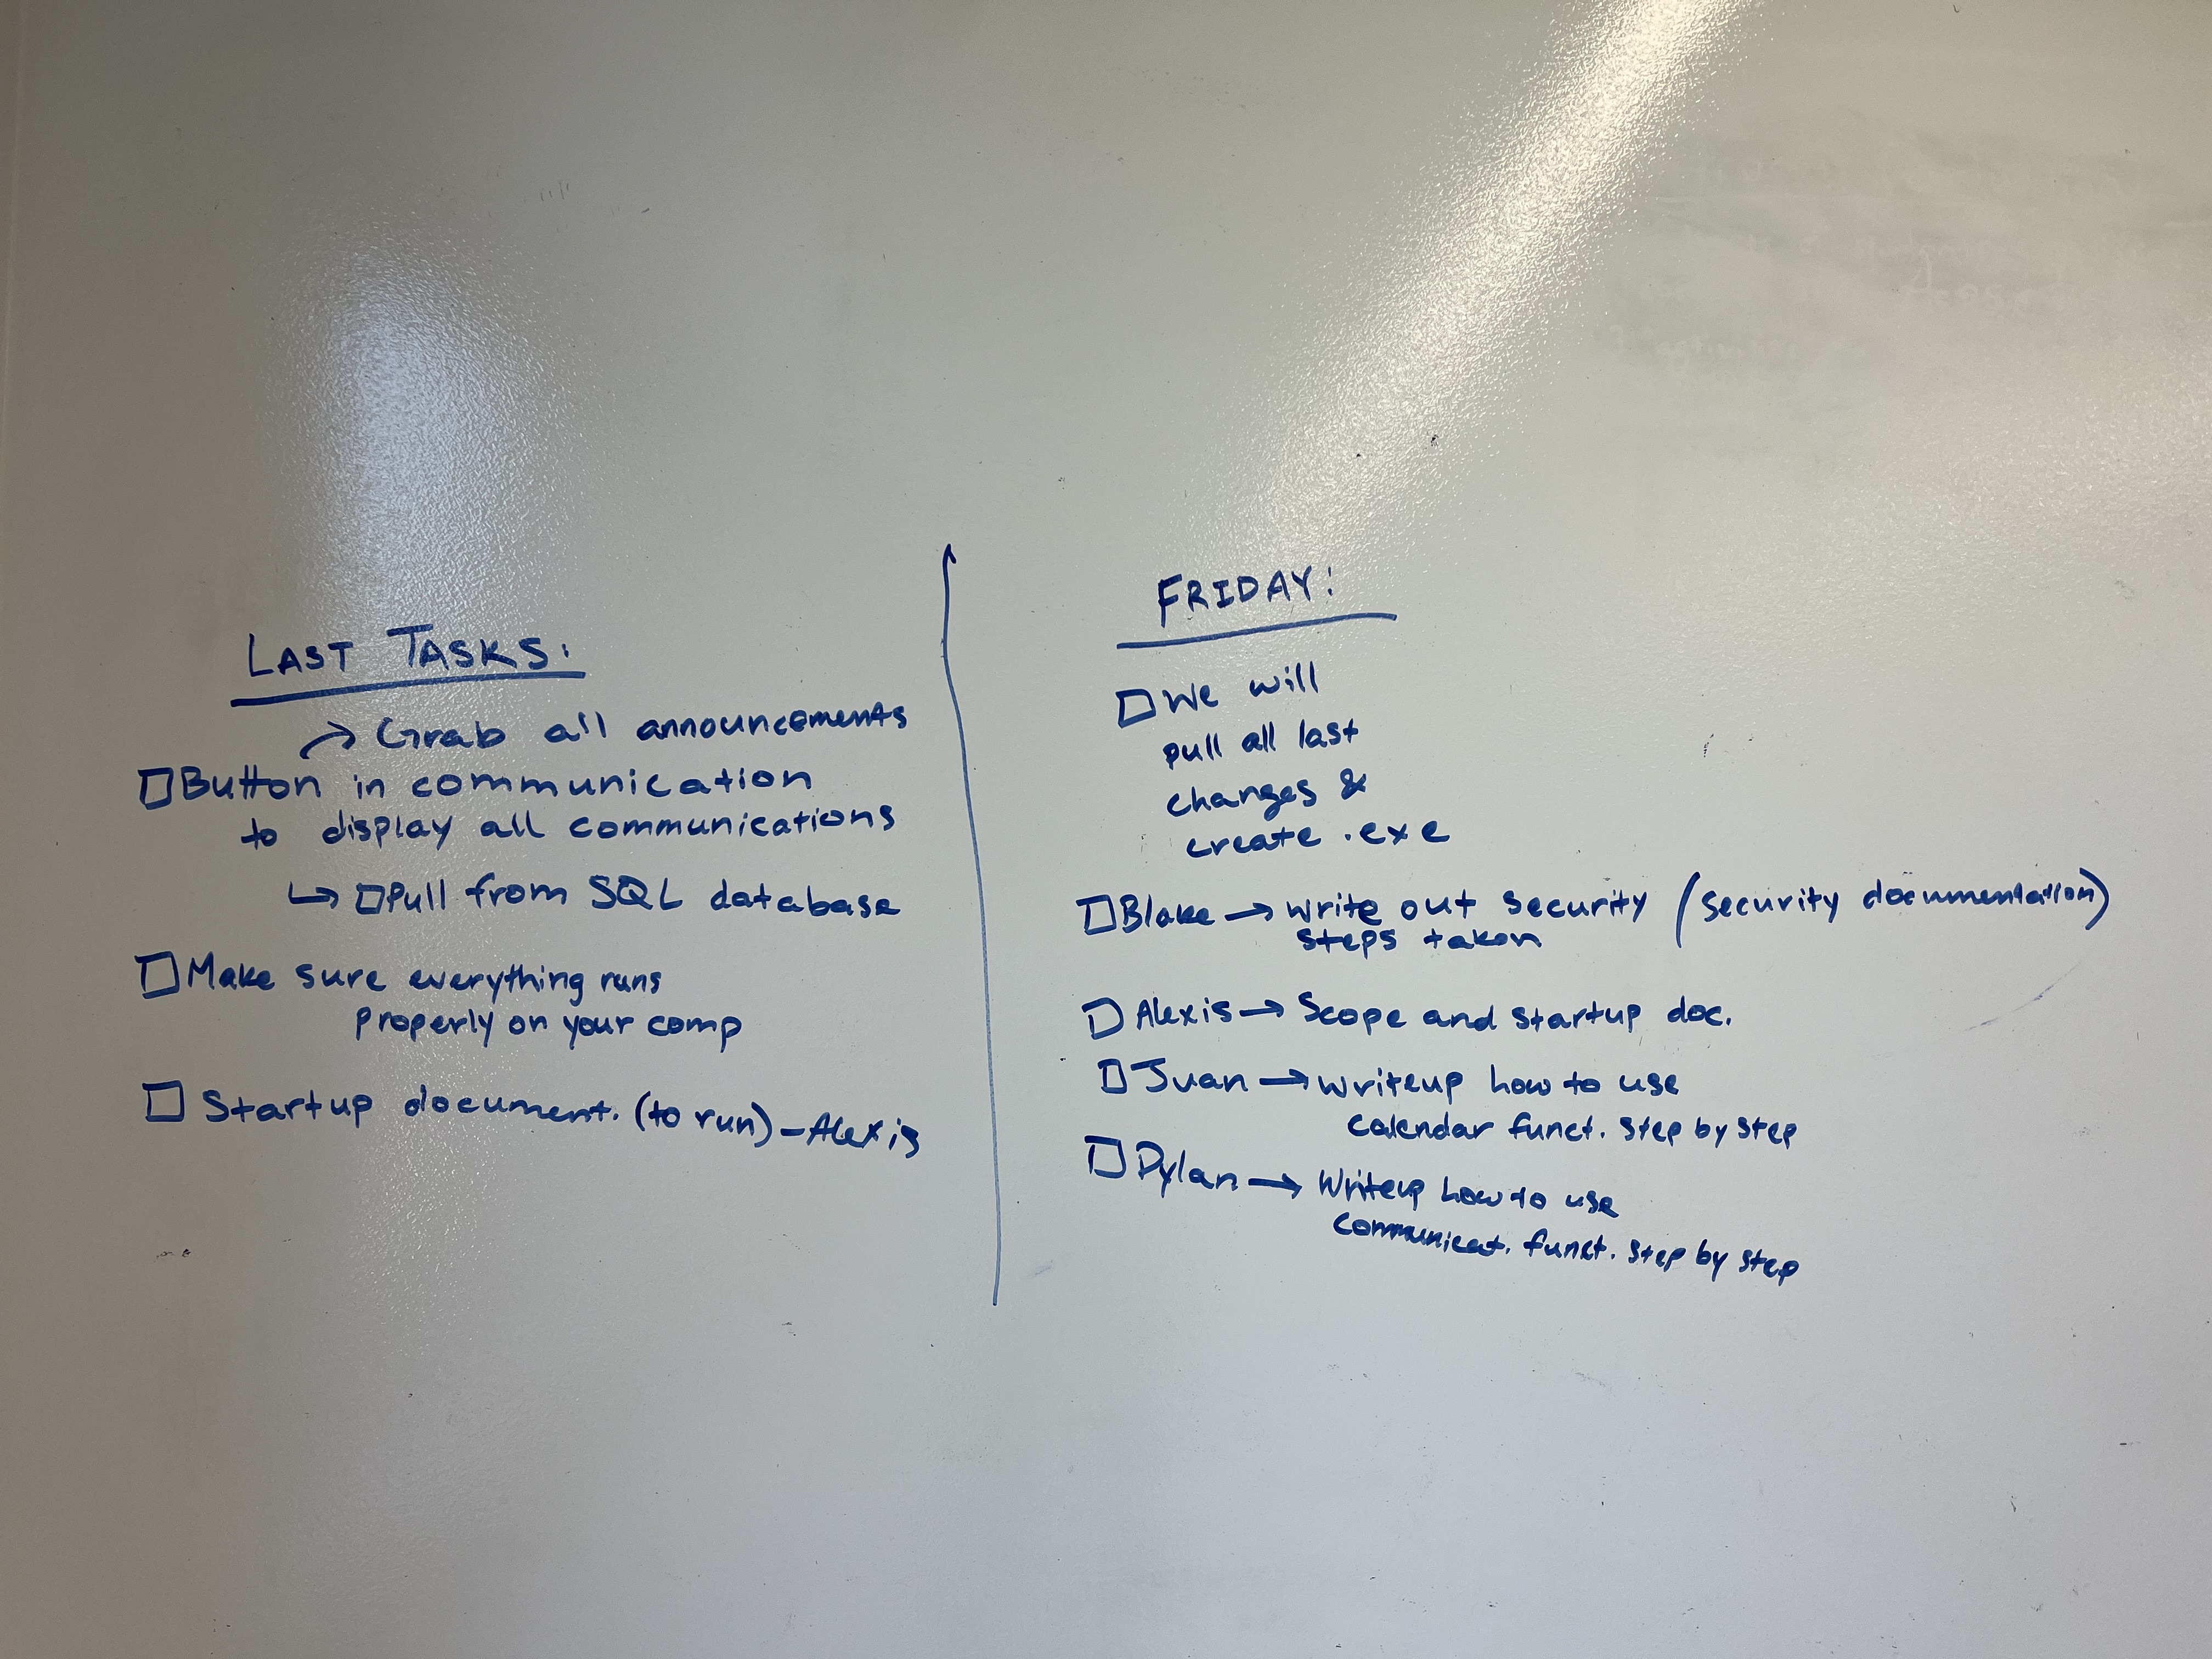 LAST TASKS:
→ Grab all announcements
□ Button in communication
to display all communications
↳ □ Pull from SQL database
□ Make sure everything runs
properly on your comp
□ Startup document. (to run) - Alexis
FRIDAY:
□ We will
pull all last
changes &
create .exe
□ Blake → write out security (security documentation)
steps taken
□ Alexis → Scope and startup doc.
□ Juan → writeup how to use
calendar funct. step by step
□ Dylan → Writeup how to use
communicat. funct. step by step